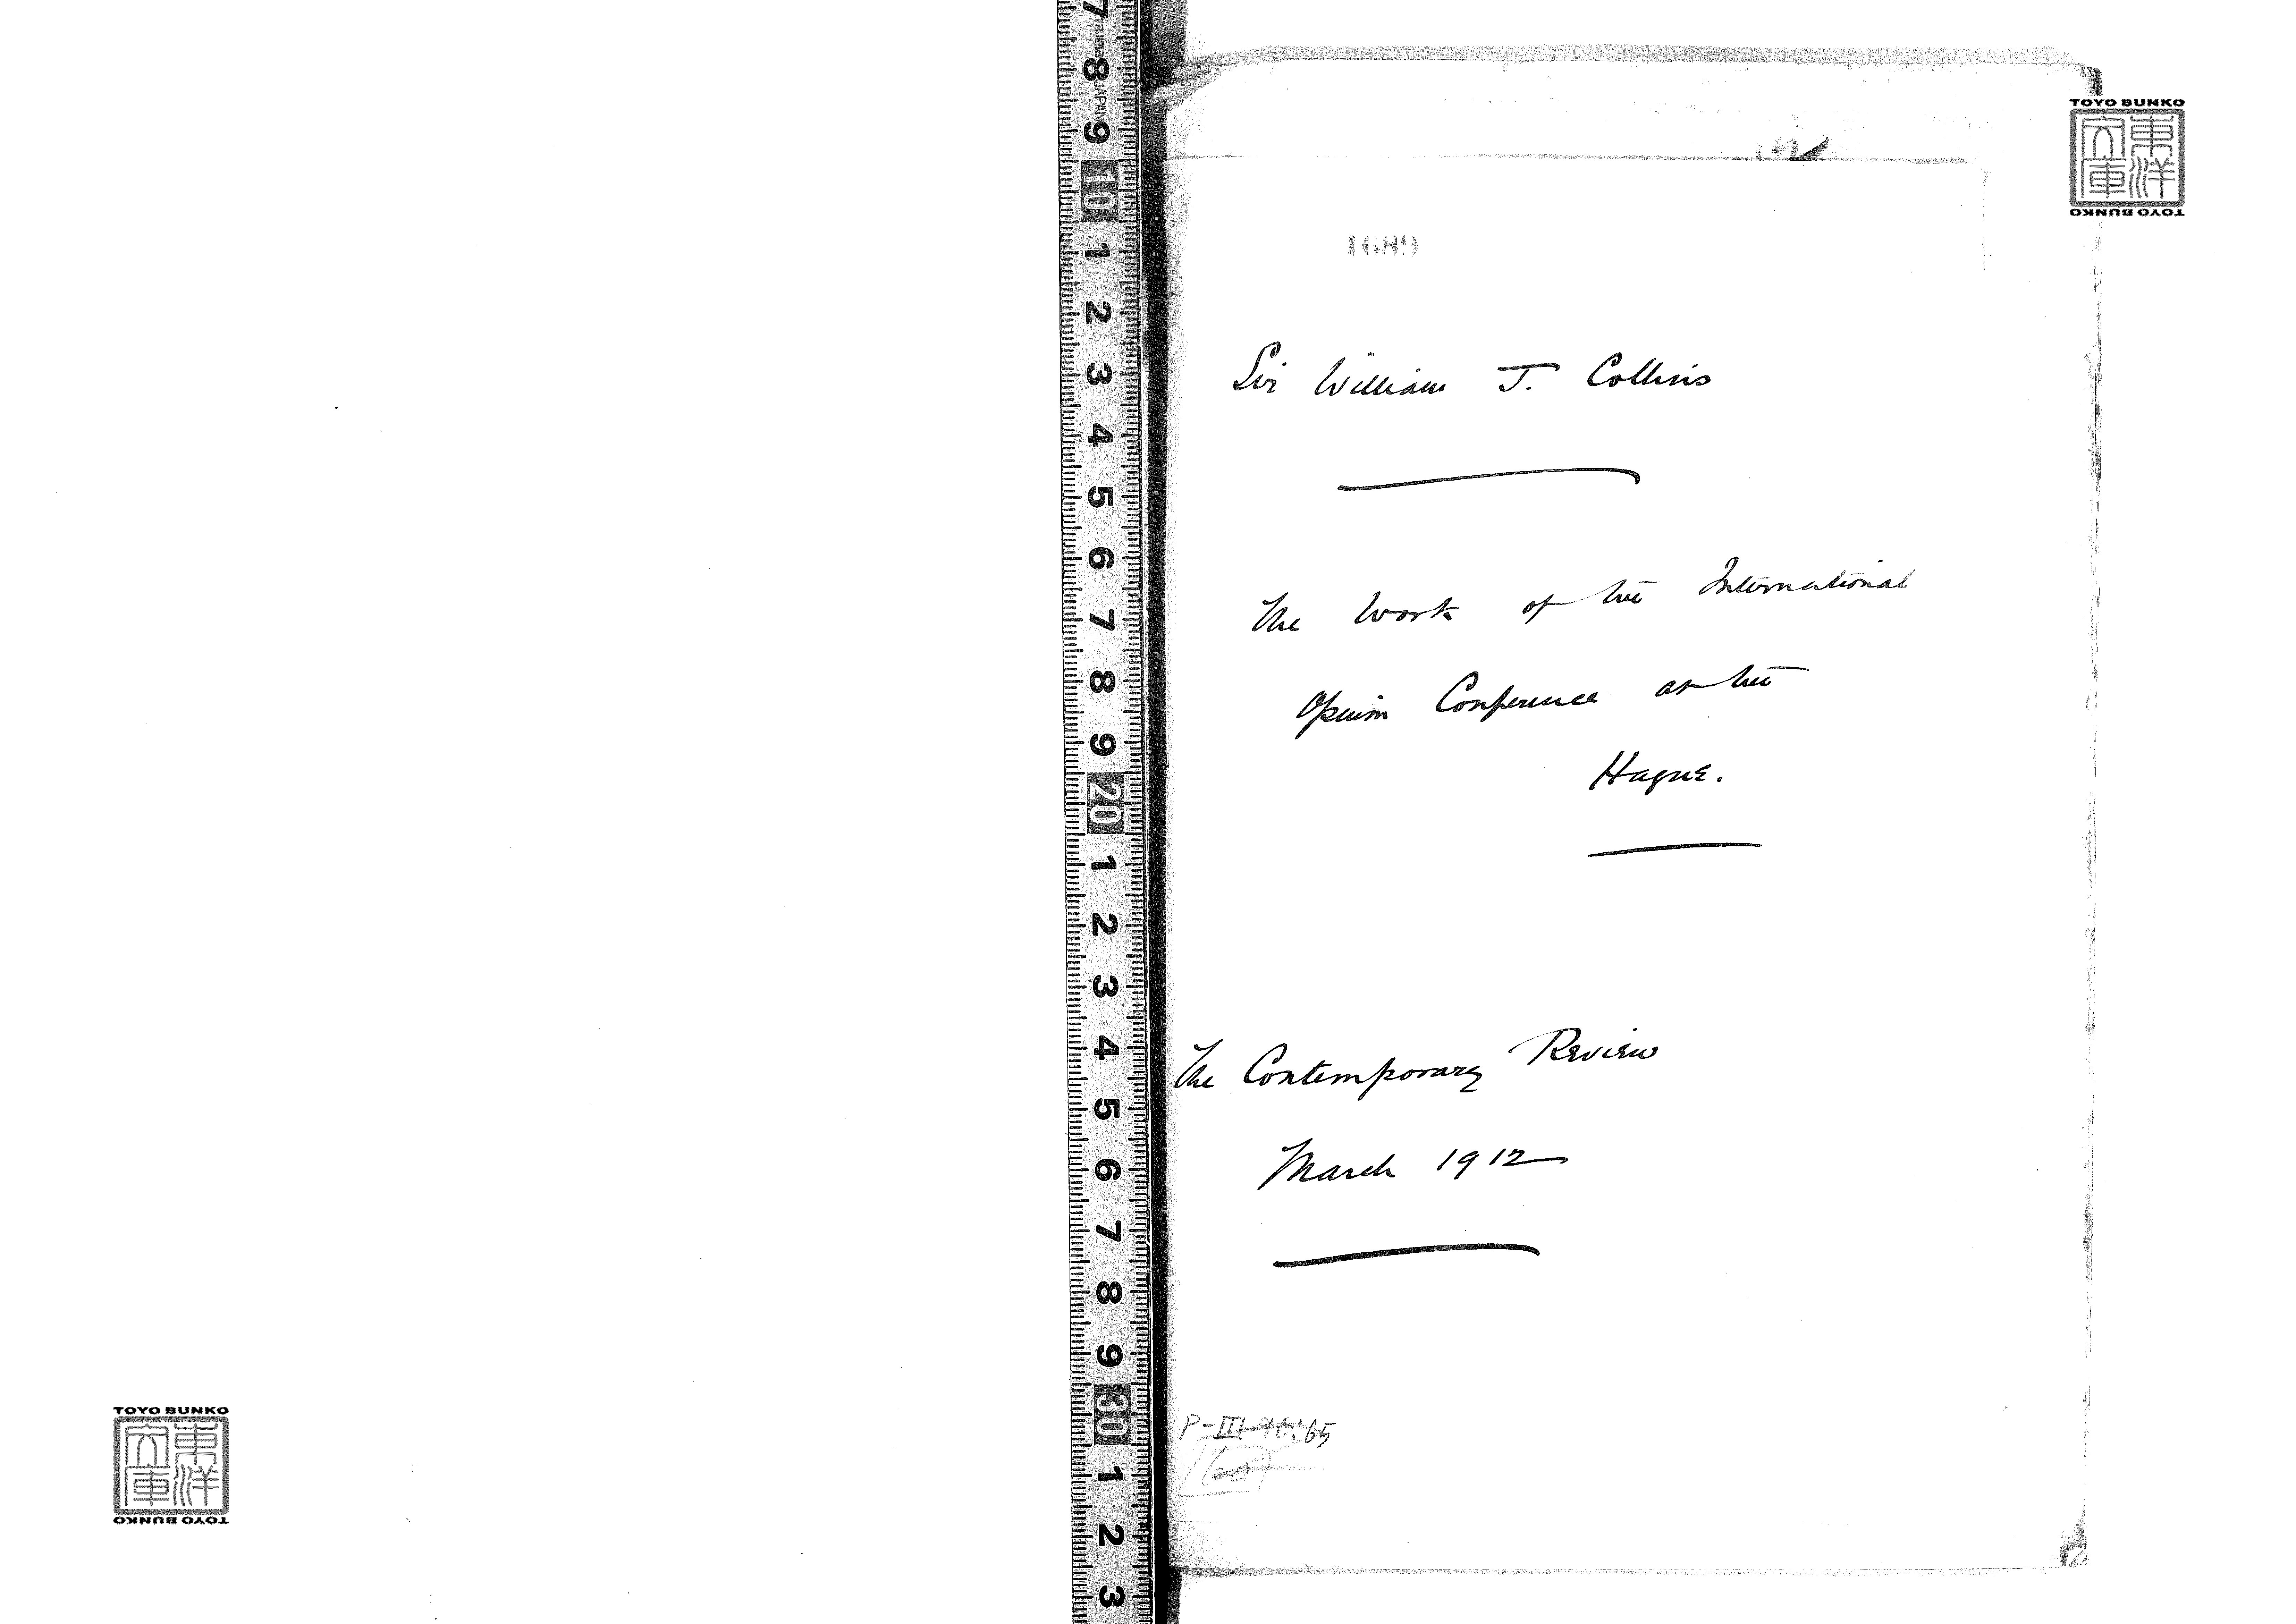 TOYO BUNKO
東洋
文庫
TOYO BUNKO
1689
Sir William J. Collins
The Work of the International
Opium Conference at the
Hague.
The Contemporary Review
March 1912
P-III
65
7 8 9 10 1 2 3 4 5 6 7 8 9 20 1 2 3 4 5 6 7 8 9 30 1 2 3
Tajima JAPAN
TOYO BUNKO
東洋
文庫
TOYO BUNKO